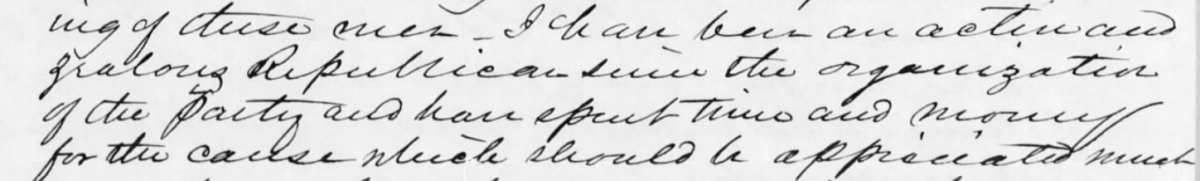 ing of these men - I have been an active and
zealous Republican since the organization
of the Party and have spent time and money
for the cause which should be appreciated much